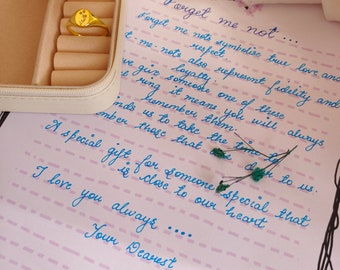 Forget me not ...
Forget me nots symbolize true love and
respect
t-me-nots also represent fidelity and
loyalty
we give someone one of these
ring it means you will always
remember them
nds us to take the time to
member those that are close to us.
A special gift for someone special that
is close to our heart
I love you always ....
Your Dearest